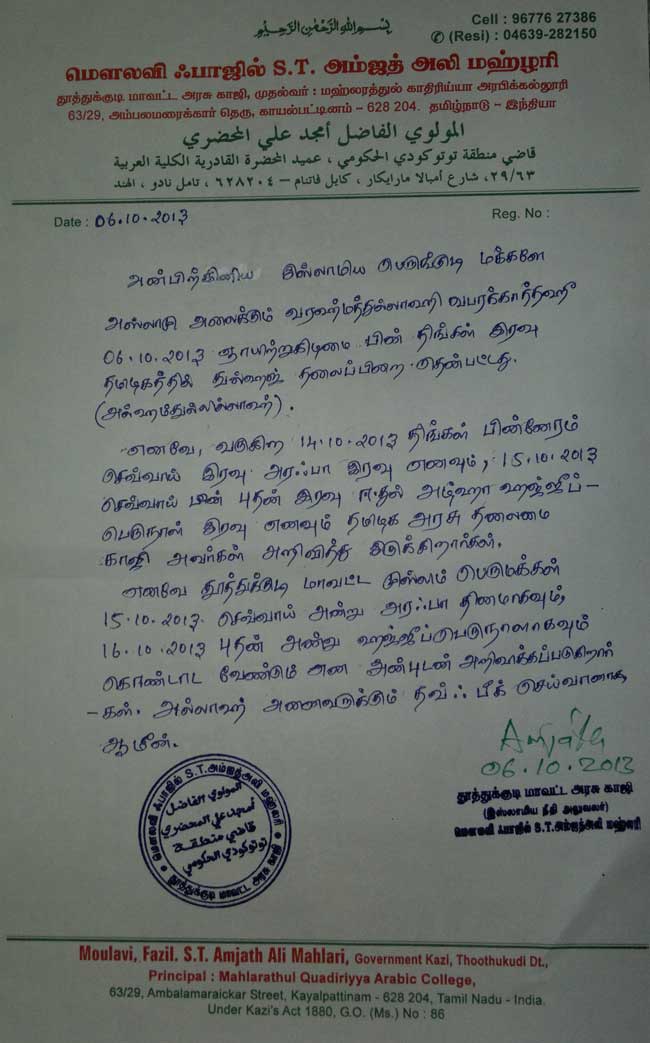 بسم الله الرحمن الرحيم
Cell : 96777 27386
✆ (Resi) : 04639-282150
மௌலவி ஃபாஜில் S.T. அம்ஜத் அலி மஹ்ழரி
தூத்துக்குடி மாவட்ட அரசு காஜி, முதல்வர் : மஹ்லரத்துல் காதிரிய்யா அரபிக்கல்லூரி
63/29, அம்பலமரைக்கார் தெரு, காயல்பட்டினம் – 628 204. தமிழ்நாடு – இந்தியா
المولوي الفاضل أمجد علي المحضري
قاضي منطقة توتوكودي الحكومي ، عميد المحضرة القادرية الكلية العربية
٢٩/٦٣، شارع أمبالا مارايكار ، كايل فاتنام – ٦٢٨٢٠٤ ، تامل نادو ، الهند
Date : 06.10.2013
Reg. No :
அன்பிற்கினிய இஸ்லாமிய பெருங்குடி மக்களே
அஸ்ஸாமு அலைக்கும் வரஹ்மத்துல்லாஹி வபரக்காத்துஹூ
06.10.2013 ஞாயிற்றுகிழமை பின் திங்கள் இரவு
தமிழகத்தில் துல்ஹஜ் தலைப்பிறை தென்பட்டது.
(அல்ஹம்துலில்லாஹ்).
எனவே, வருகிற 14.10.2013 திங்கள் பின்னேரம்
செவ்வாய் இரவு அரஃபா இரவு எனவும், 15.10.2013
செவ்வாய் பின் புதன் இரவு ஈதுல் அழ்ஹா ஹஜ்ஜீப்–
பெருநாள் இரவு எனவும் தமிழக அரசு தலைமை
காஜி அவர்கள் அறிவித்து இருக்கிறார்கள்.
எனவே தூத்துக்குடி மாவட்ட முஸ்லிம் பெருமக்கள்
15.10.2013 செவ்வாய் அன்று அரஃபா தினமாகவும்,
16.10.2013 புதன் அன்று ஹஜ்ஜீப்பெருநாளாகவும்
கொண்டாட வேண்டும் என அன்புடன் அறிவிக்கப்படுகிறார்
–கள். அல்லாஹ் அனைவருக்கும் தவ்ஃபீக் செய்வானாக
ஆமீன்.
06.10.2013
தூத்துக்குடி மாவட்ட அரசு காஜி
(இஸ்லாமிய நீதி அலுவலர்)
மௌலவி ஃபாஜில் S.T.அம்ஜத்அலி மஹ்ழரி
மௌலவி ஃபாஜில் S.T.அம்ஜத்அலி மஹ்ழரி
المولوي الفاضل
أمجد علي المحضري
قاضي منطقة
توتوكودي الحكومي
தூத்துக்குடி மாவட்ட அரசு காஜி
Moulavi, Fazil. S.T. Amjath Ali Mahlari, Government Kazi, Thoothukudi Dt.,
Principal : Mahlarathul Quadiriyya Arabic College,
63/29, Ambalamaraickar Street, Kayalpattinam - 628 204, Tamil Nadu - India.
Under Kazi's Act 1880, G.O. (Ms.) No : 86